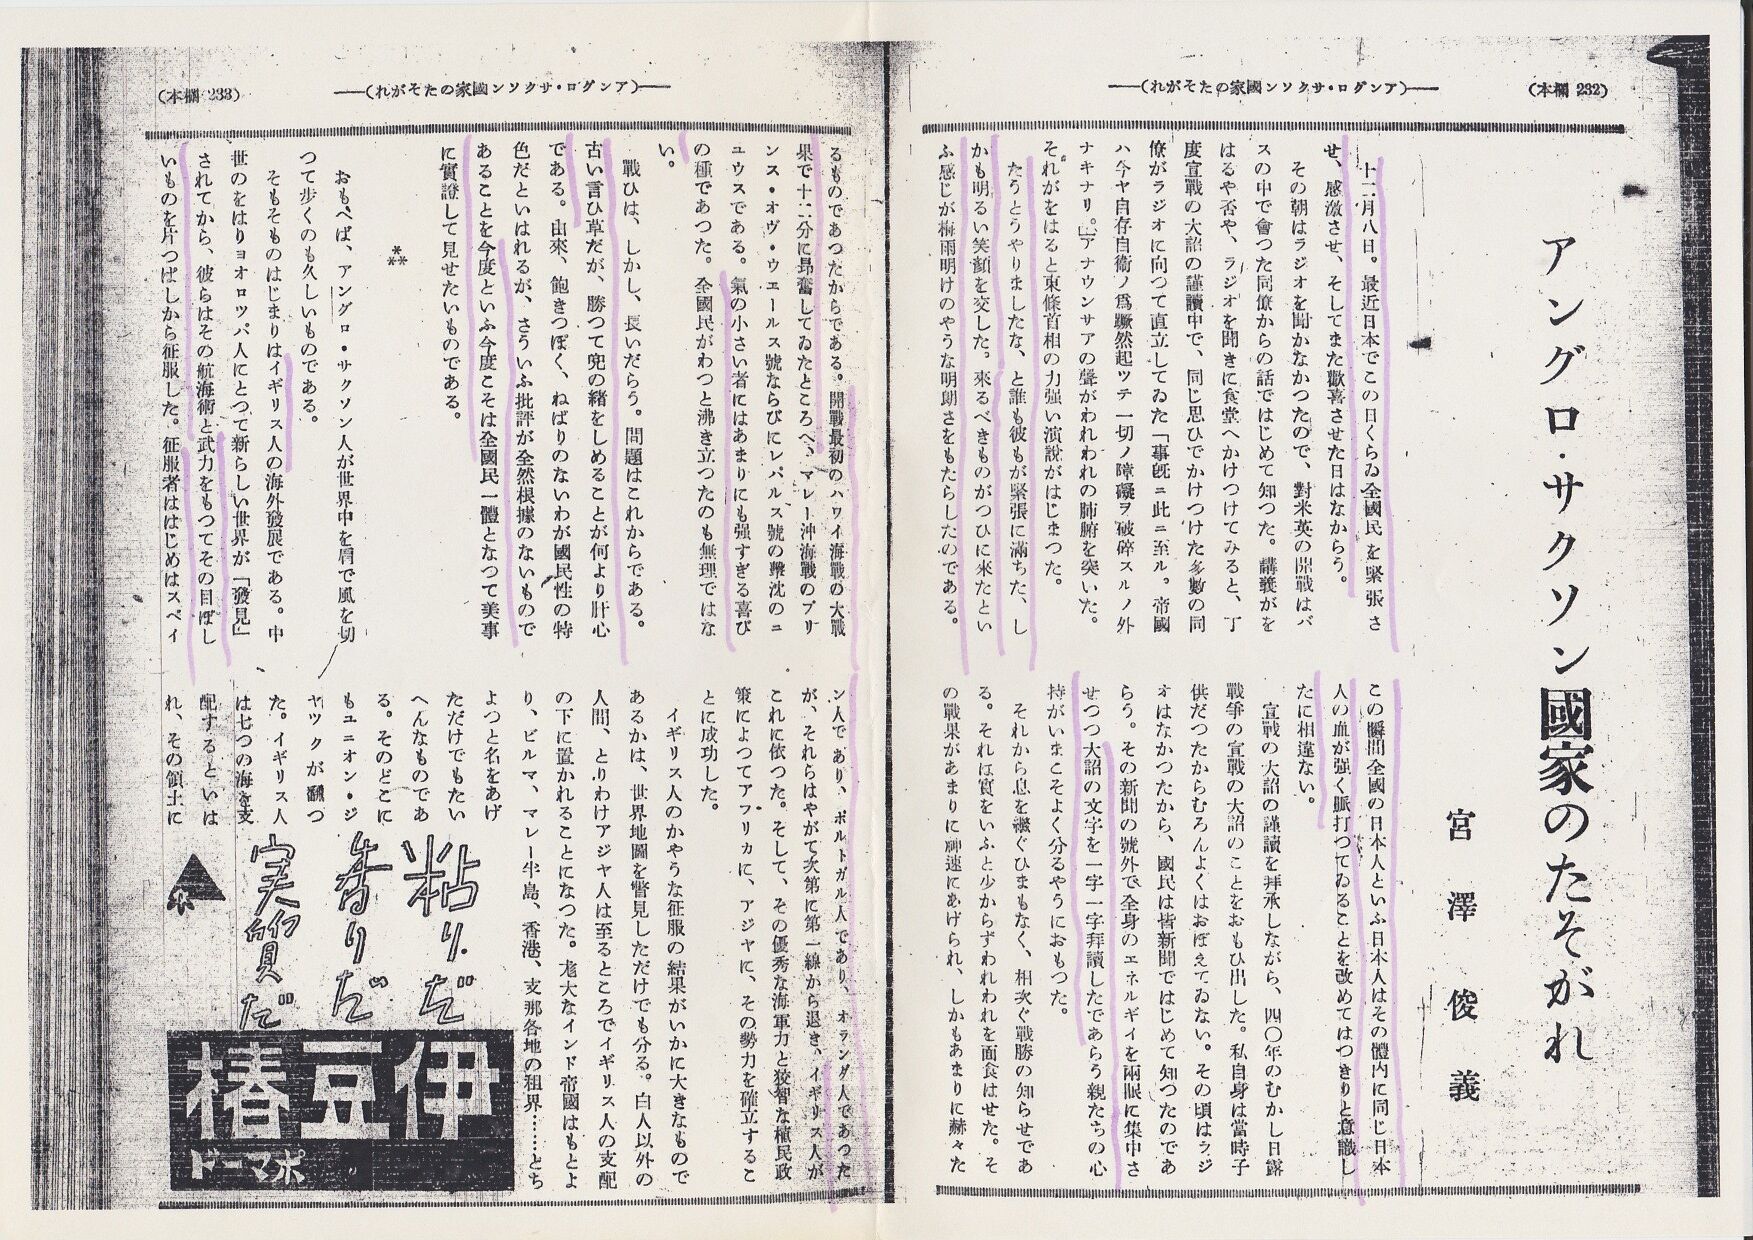 (本欄 232)
――(アングロ・サクソン國家のたそがれ)――
アングロ・サクソン國家のたそがれ
宮澤俊義
十二月八日。最近日本でこの日くらゐ全國民を緊張さ
せ、感激させ、そしてまた歡喜させた日はなからう。
その朝はラジオを聞かなかつたので、對米英の開戰はバ
スの中で會つた同僚からの話ではじめて知つた。講義がを
はるや否や、ラジオを聞きに食堂へかけつけてみると、丁
度宣戰の大詔の謹讀中で、同じ思ひでかけつけた多數の同
僚がラジオに向つて直立してゐた「事既ニ此ニ至ル。帝國
ハ今ヤ自存自衞ノ爲蹶然起ツテ一切ノ障礙ヲ破碎スルノ外
ナキナリ。」アナウンサアの聲がわれわれの肺腑を突いた。
それがをはると東條首相の力强い演説がはじまつた。
たうとうやりましたな、と誰も彼もが緊張に滿ちた、し
かも明るい笑顏を交した。來るべきものがつひに來たとい
ふ感じが梅雨明けのやうな明朗さをもたらしたのである。
この瞬間全國の日本人といふ日本人はその體内に同じ日本
人の血が强く脈打つてゐることを改めてはつきりと意識し
たに相違ない。
宣戰の大詔の謹讀を拜承しながら、四〇年のむかし日露
戰爭の宣戰の大詔のことをおもひ出した。私自身は當時子
供だつたからむろんよくはおぼえてゐない。その頃はラジ
オはなかつたから、國民は皆新聞ではじめて知つたのであ
らう。その新聞の號外で全身のエネルギイを兩眼に集中さ
せつつ大詔の文字を一字一字拜讀したであらう親たちの心
持がいまこそよく分るやうにおもつた。
それから息を繼ぐひまもなく、相次ぐ戰勝の知らせであ
る。それは實をいふと少からずわれわれを面食はせた。そ
の戰果があまりに神速にあげられ、しかもあまりに赫々た
(本欄 233)
――(アングロ・サクソン國家のたそがれ)――
るものであつたからである。開戰最初のハワイ海戰の大戰
果で十二分に昂奮してゐたところへ、マレー沖海戰のプリ
ンス・オヴ・ウエールス號ならびにレパルス號の擊沈のニ
ュウスである。氣の小さい者にはあまりにも强すぎる喜び
の種であつた。全國民がわつと沸き立つたのも無理ではな
い。
戰ひは、しかし、長いだらう。問題はこれからである。
古い言ひ草だが、勝つて兜の緖をしめることが何より肝心
である。由來、飽きつぽく、ねばりのないわが國民性の特
色だといはれるが、さういふ批評が全然根據のないもので
あることを今度といふ今度こそは全國民一體となつて美事
に實證して見せたいものである。
***
おもへば、アングロ・サクソン人が世界中を肩で風を切
つて步くのも久しいものである。
そもそものはじまりはイギリス人の海外發展である。中
世のをはりョオロッパ人にとつて新らしい世界が「發見」
されてから、彼らはその航海術と武力をもつてその目ぼし
いものを片つぱしから征服した。征服者ははじめはスペイ
ン人であり、ポルトガル人であり、オランダ人であつた
が、それらはやがて次第に第一線から退き、イギリス人が
これに依つた。そして、その優秀な海軍力と狡智な植民政
策によつてアフリカに、アジヤに、その勢力を確立するこ
とに成功した。
イギリス人のかやうな征服の結果がいかに大きなもので
あるかは、世界地圖を瞥見しただけでも分る。白人以外の
人間、とりわけアジヤ人は至るところでイギリス人の支配
の下に置かれることになつた。尨大なインド帝國はもとよ
り、ビルマ、マレー半島、香港、支那各地の租界……とち
よつと名をあげ
ただけでもたい
へんなものであ
る。そのどこに
もユニオン・ジ
ヤツクが飜つ
た。イギリス人
は七つの海を支
配するといは
れ、その領土に
粘りだ
香りだ
実質だ
伊豆椿
ポマード